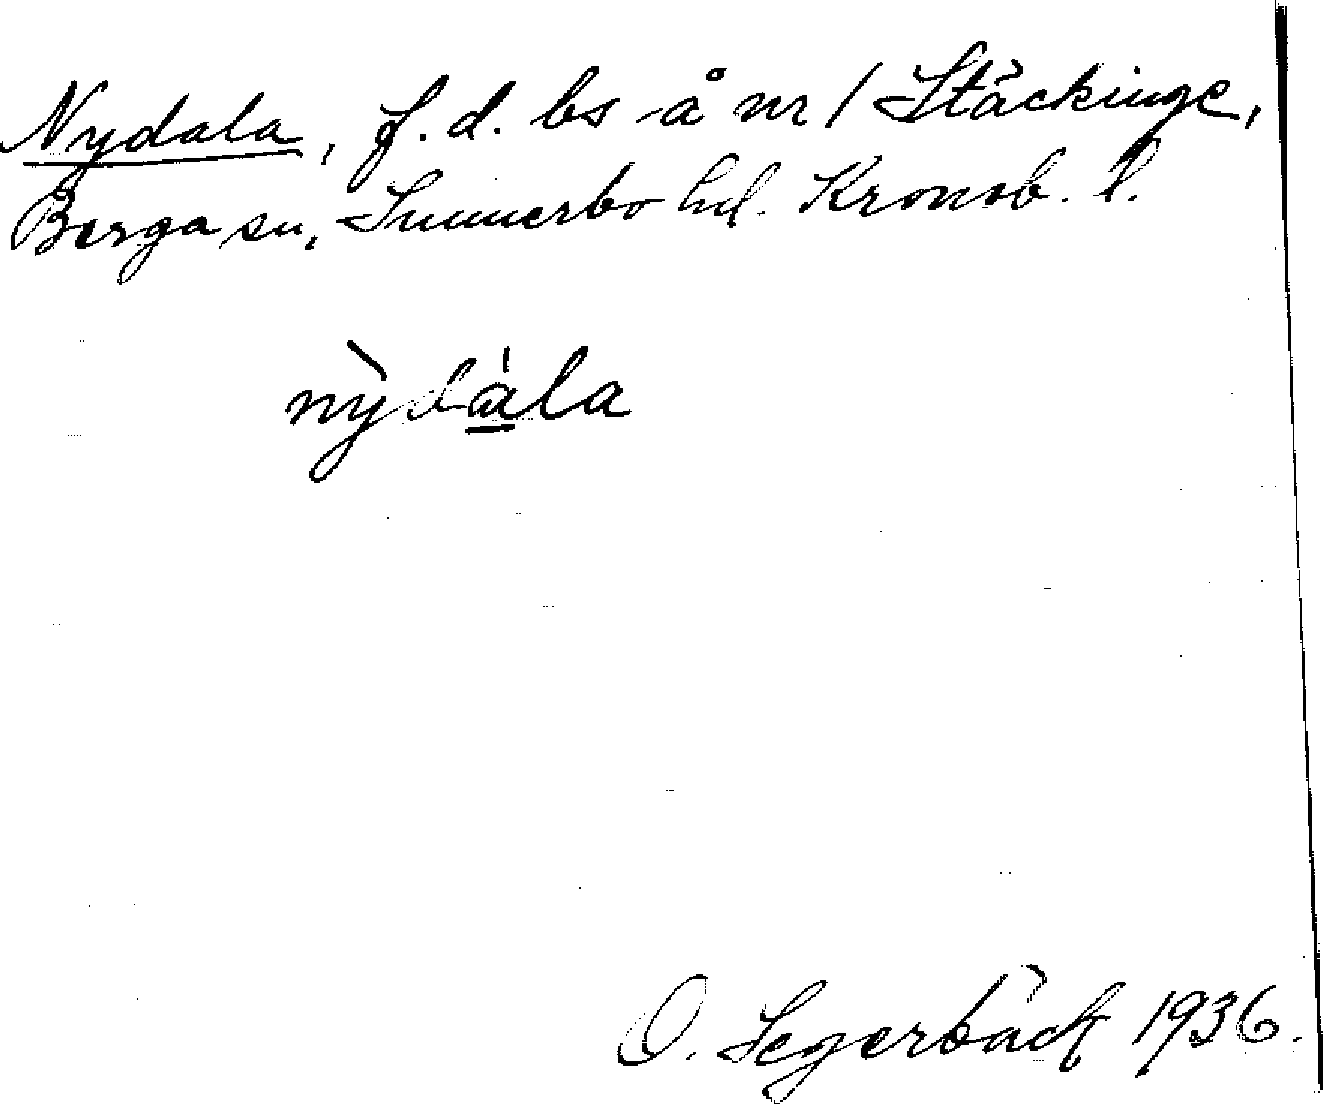 Nydala, f.d. bs å nr 1 Stäckinge,
Berga sn, Sunnerbo hd. Kronob. l.
nỳdàla
O. Segerbäck 1936.